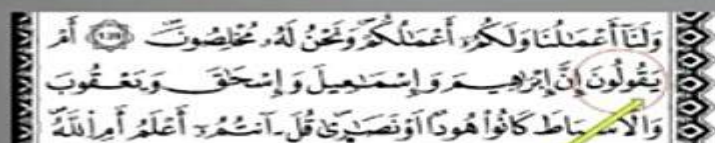 وَلَنَآ أَعْمَٰلُنَا وَلَكُمُۥٓ أَعْمَٰلُكُمْ وَنَحْنُ لَهُۥ مُخْلِصُونَ أَمْ
يَقُولُونَ إِنَّ إِبْرَٰهِيمَ وَإِسْمَٰعِيلَ وَإِسْحَٰقَ وَيَعْقُوبَ
وَالْأَسْبَاطَ كَانُوا۟ هُودًا أَوْ نَصَٰرَىٰ قُلْ ءَآنتُمُۥٓ أَعْلَمُ أَمِ اللَّهُ